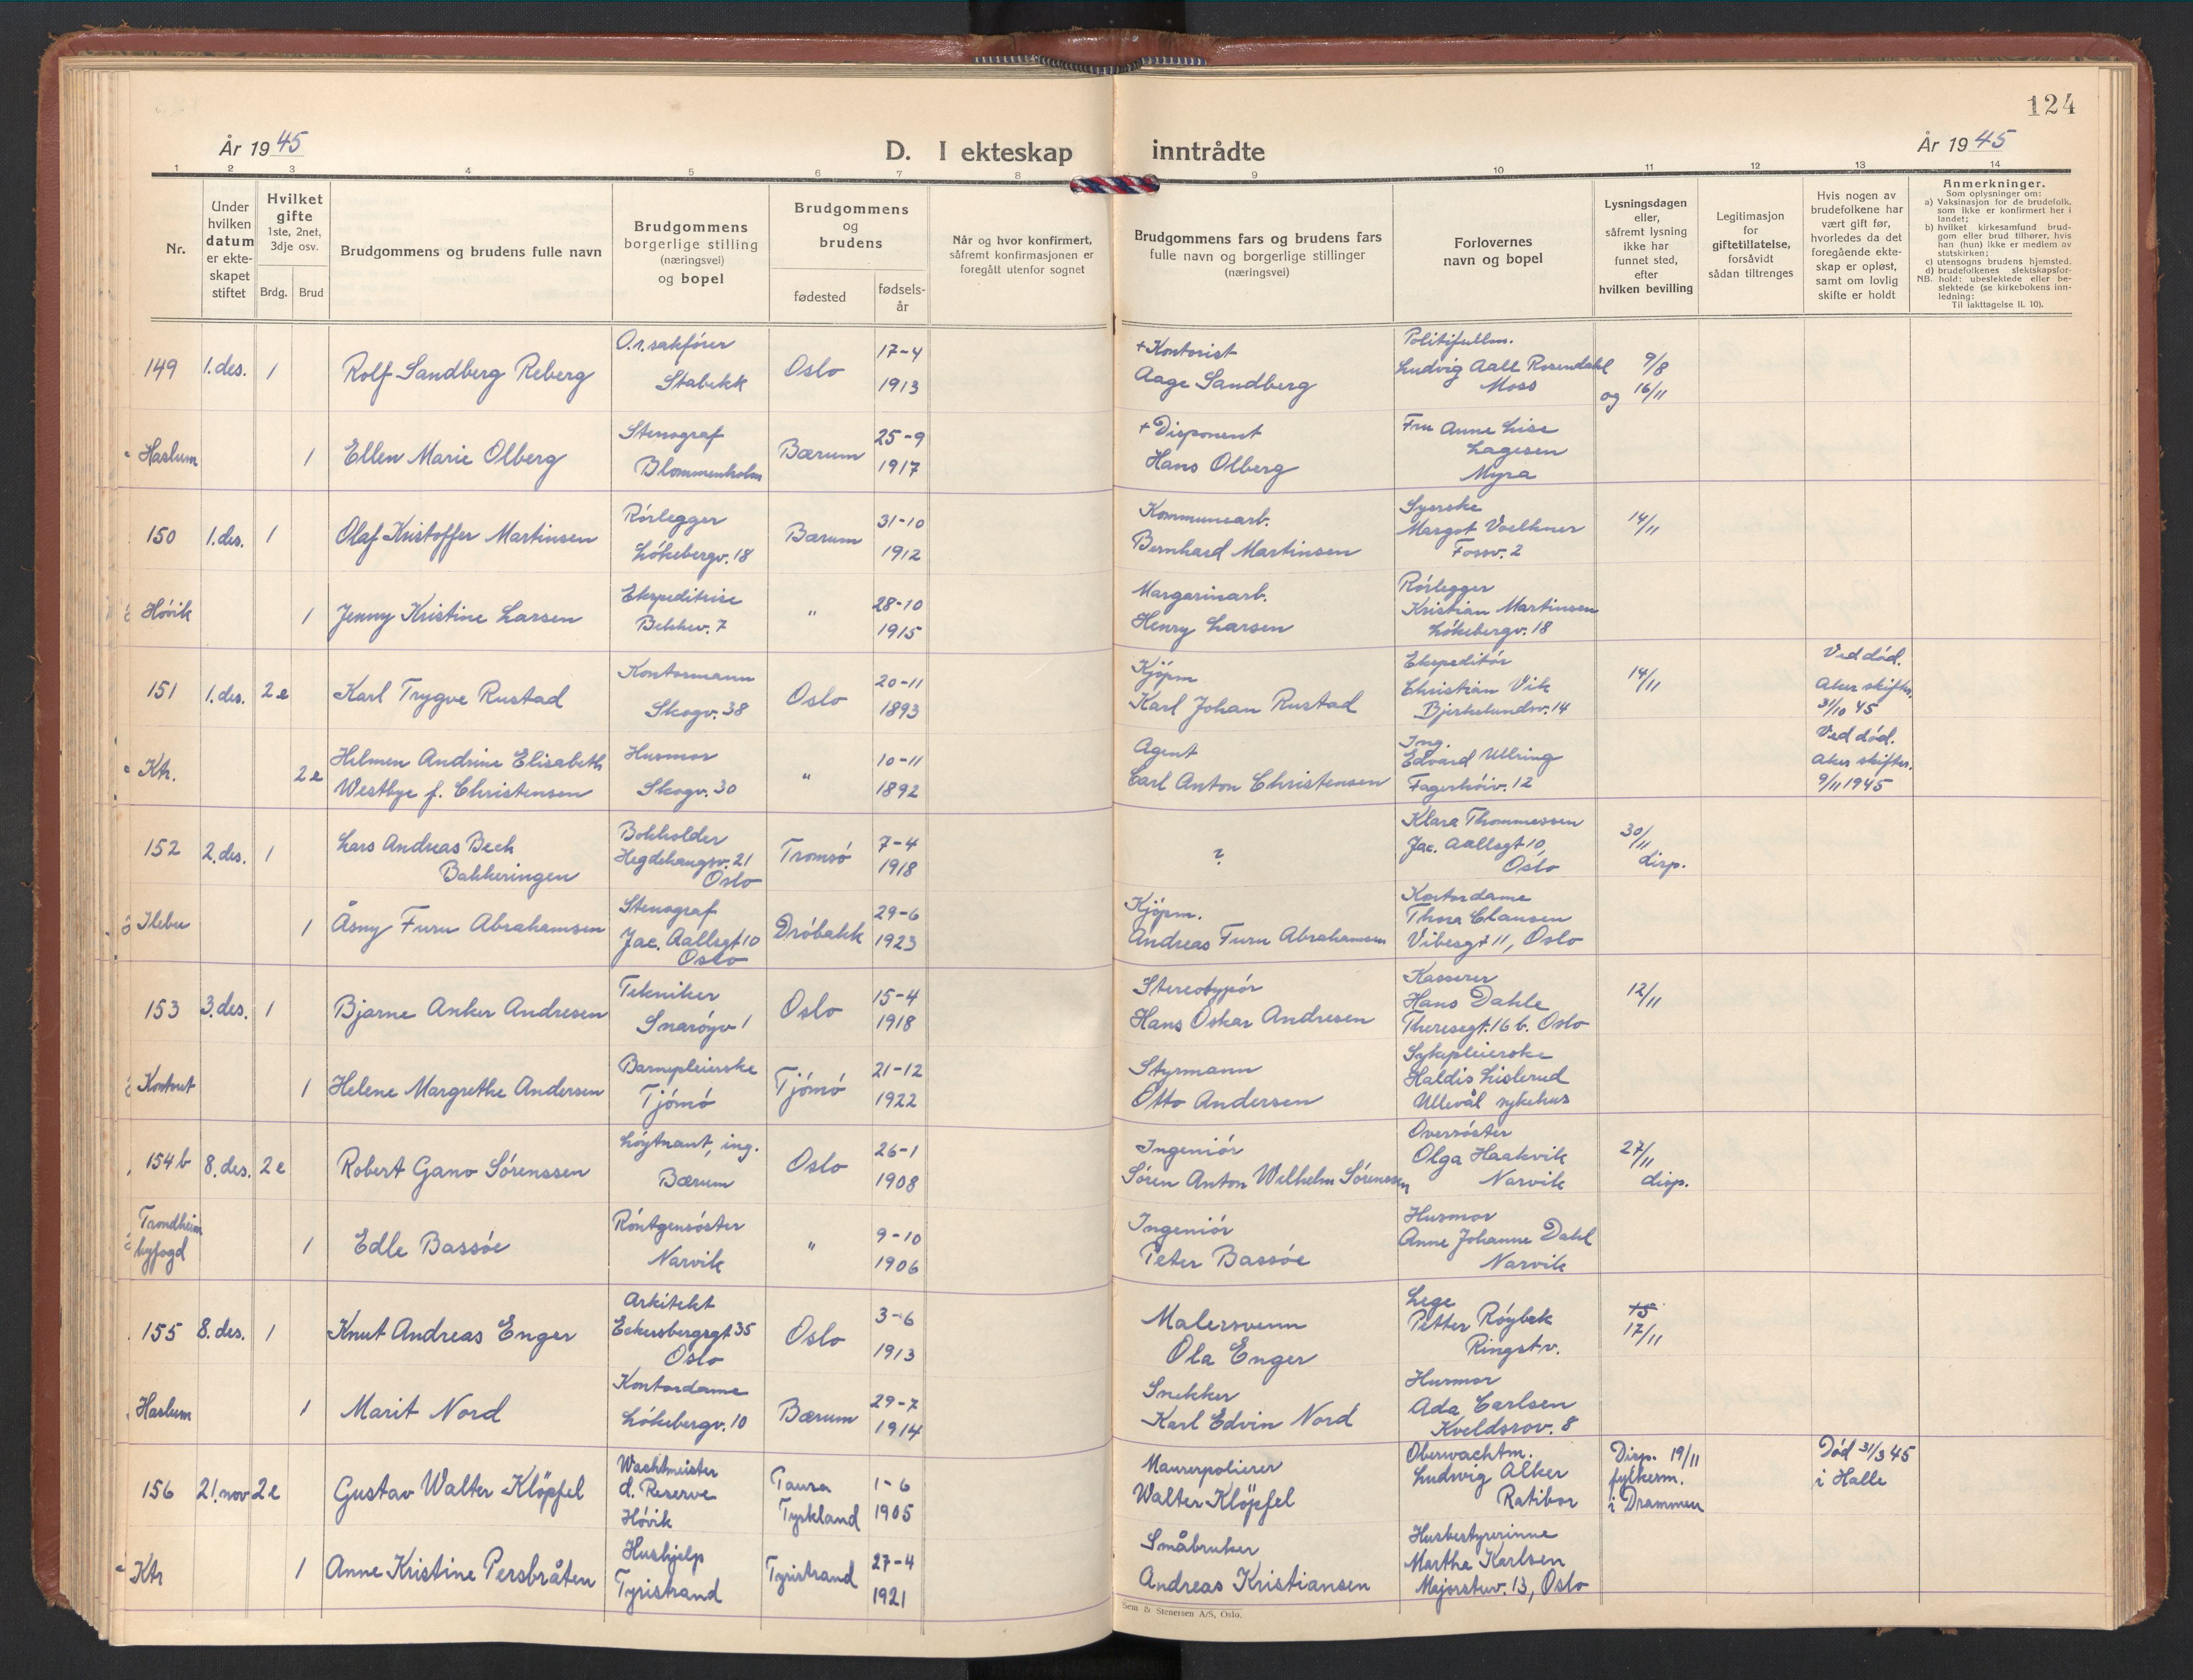 124
År 1945
D. I ekteskap inntrådte
År 1945
1 2 3 4 5 6 7 8 9 10 11 12 13 14
Nr.
Under
hvilken
datum
er ekte-
skapet
stiftet
Hvilket
gifte
1ste, 2net,
3dje osv.
Brdg. Brud
Brudgommens og brudens fulle navn
Brudgommens
borgerlige stilling
(næringsvei)
og bopel
Brudgommens
og
brudens
fødested
fødsels-
år
Når og hvor konfirmert,
såfremt konfirmasjonen er
foregått utenfor sognet
Brudgommens fars og brudens fars
fulle navn og borgerlige stillinger
(næringsvei)
Forlovernes
navn og bopel
Lysningsdagen
eller,
såfremt lysning
ikke har
funnet sted,
efter
hvilken bevilling
Legitimasjon
for
giftetillatelse,
forsåvidt
sådan tiltrenges
Hvis nogen av
brudefolkene har
vært gift før,
hvorledes da det
foregående ekte-
skap er opløst,
samt om lovlig
skifte er holdt
Anmerkninger.
Som oplysninger om:
a) Vaksinasjon for de brudefolk,
som ikke er konfirmert her i
landet;
b) hvilket kirkesamfund brud-
gom eller brud tilhører, hvis
han (hun) ikke er medlem av
statskirken;
c) utensogns brudens hjemsted.
d) brudefolkenes slektskapsfor-
NB. hold: ubeslektede eller be-
slektede (se kirkebokens inn-
ledning:
Til iakttagelse II. 10).
149 1. des. 1 Rolf Sandberg Reberg
O.r. sakfører
Stabekk
Oslo
17-4
1913
+ Kontorist
Aage Sandberg
Politifullm.
Ludvig Aall Rosendahl
Moss
9/8
og 16/11
Haslum 1 Ellen Marie Olberg
Stenograf
Blommenholm
Bærum
25-9
1917
+ Disponent
Hans Olberg
Fru Anne Lise
Lagesen
Myra
150 1. des. 1 Olaf Kristoffer Martinsen
Rørlegger
Løkebergv. 18
Bærum
31-10
1912
Kommunearb.
Bernhard Martinsen
Syerske
Margot Voelkner
Fossv. 2
14/11
Høvik 1 Jenny Kristine Larsen
Ekspeditrise
Bekkev. 7
"
28-10
1915
Margarinarb.
Henry Larsen
Rørlegger
Kristian Martinsen
Løkebergv. 18
151 1. des. 2e Karl Trygve Rustad
Kontormann
Skogv. 38
Oslo
20-11
1893
Kjøpm
Karl Johan Rustad
Ekspeditør
Christian Vik
Bjerkelundsv. 14
14/11
Ved død.
Aker skifter.
31/10 45
Ktr. 2e Helmen Andrine Elisabeth
Westbye f. Christensen
Husmor
Skogv. 30
"
10-11
1892
Agent
Carl Anton Christensen
Ing.
Edvard Ullring
Fagerhøiv. 12
Ved død.
Aker skifter.
9/11 1945
152 2. des. 1 Lars Andreas Beck
Bakkeringen
Bokholder
Hegdehaugsv. 21
Oslo
Tromsø
7-4
1918
?
Klara Thommessen
Jac. Aallsgt 10,
Oslo
30/11
disp.
Ilebu 1 Åsny Furu Abrahamsen
Stenograf
Jac. Aallsgt 10
Oslo
Drøbakk
29-6
1923
Kjøpm.
Andreas Furu Abrahamsen
Kontordame
Thora Clausen
Vibesgt 11, Oslo
153 3. des. 1 Bjarne Anker Andresen
Tekniker
Snarøyv 1
Oslo
15-4
1918
Stereotypør
Hans Oskar Andresen
Kasserer
Hans Dahle
Theresegt. 16 b. Oslo
12/11
Kontnt 1 Helene Margrethe Andersen
Barnepleierske
Tjømø
Tjømø
21-12
1922
Styrmann
Otto Andersen
Sykepleierske
Haldis Lislerud
Ullevål sykehus
154 b 8. des. 2e Robert Gano Sørenssen
Løytnant, ing.
Bærum
Oslo
26-1
1908
Ingeniør
Søren Anton Wilhelm Sørenssen
Oversøster
Olga Haakvik
Narvik
27/11
disp.
Trondheim
byfogd
1 Edle Bassøe
Røntgensøster
Narvik
"
9-10
1906
Ingeniør
Peter Bassøe
Husmor
Anne Johanne Dahl
Narvik
155 8. des. 1 Knut Andreas Enger
Arkitekt
Eckersbergsgt. 35
Oslo
Oslo
3-6
1913
Malersvenn
Ola Enger
Lege
Petter Røybek
Ringst v.
15
17/11
Haslum 1 Marit Nord
Kontordame
Løkebergv. 10
Bærum
29-7
1914
Snekker
Karl Edvin Nord
Husmor
Ada Carlsen
Kveldsrov. 8
156 21. nov 2e Gustav Walter Klöpfel
Wachtmeister
d. Reserve
Høvik
Taura
Tyskland
1-6
1905
Maurerpolierer
Walter Klöpfel
Oberwachtm.
Ludwig Alker
Ratibor
Disp. 19/11
fylkesm.
i Drammen
Død 31/3 45
i Halle
Ktr 1 Anne Kristine Persbråten
Hushjelp
Tyristrand
Tyristrand
27-4
1921
Småbruker
Andreas Kristiansen
Husbestyrerinne
Martha Karlsen
Majorstuv. 13, Oslo
Sem & Stenersen A/S, Oslo.